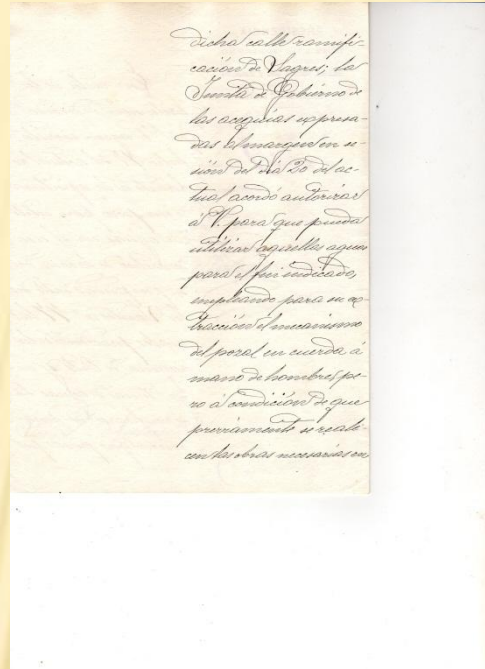 dicha calle ramifi-
cación de Sagres; la
Junta de Gobierno de
las acequias expresa-
das al margen en se-
sión del día 20 del ac-
tual acordó autorizar
á V. para que pueda
utilizar aquellas aguas
para el fin indicado,
empleando para su ex-
tracción el mecanismo
del pozal en cuerda á
mano de hombres pe-
ro á condición de que
previamente se reali-
cen las obras necesarias en